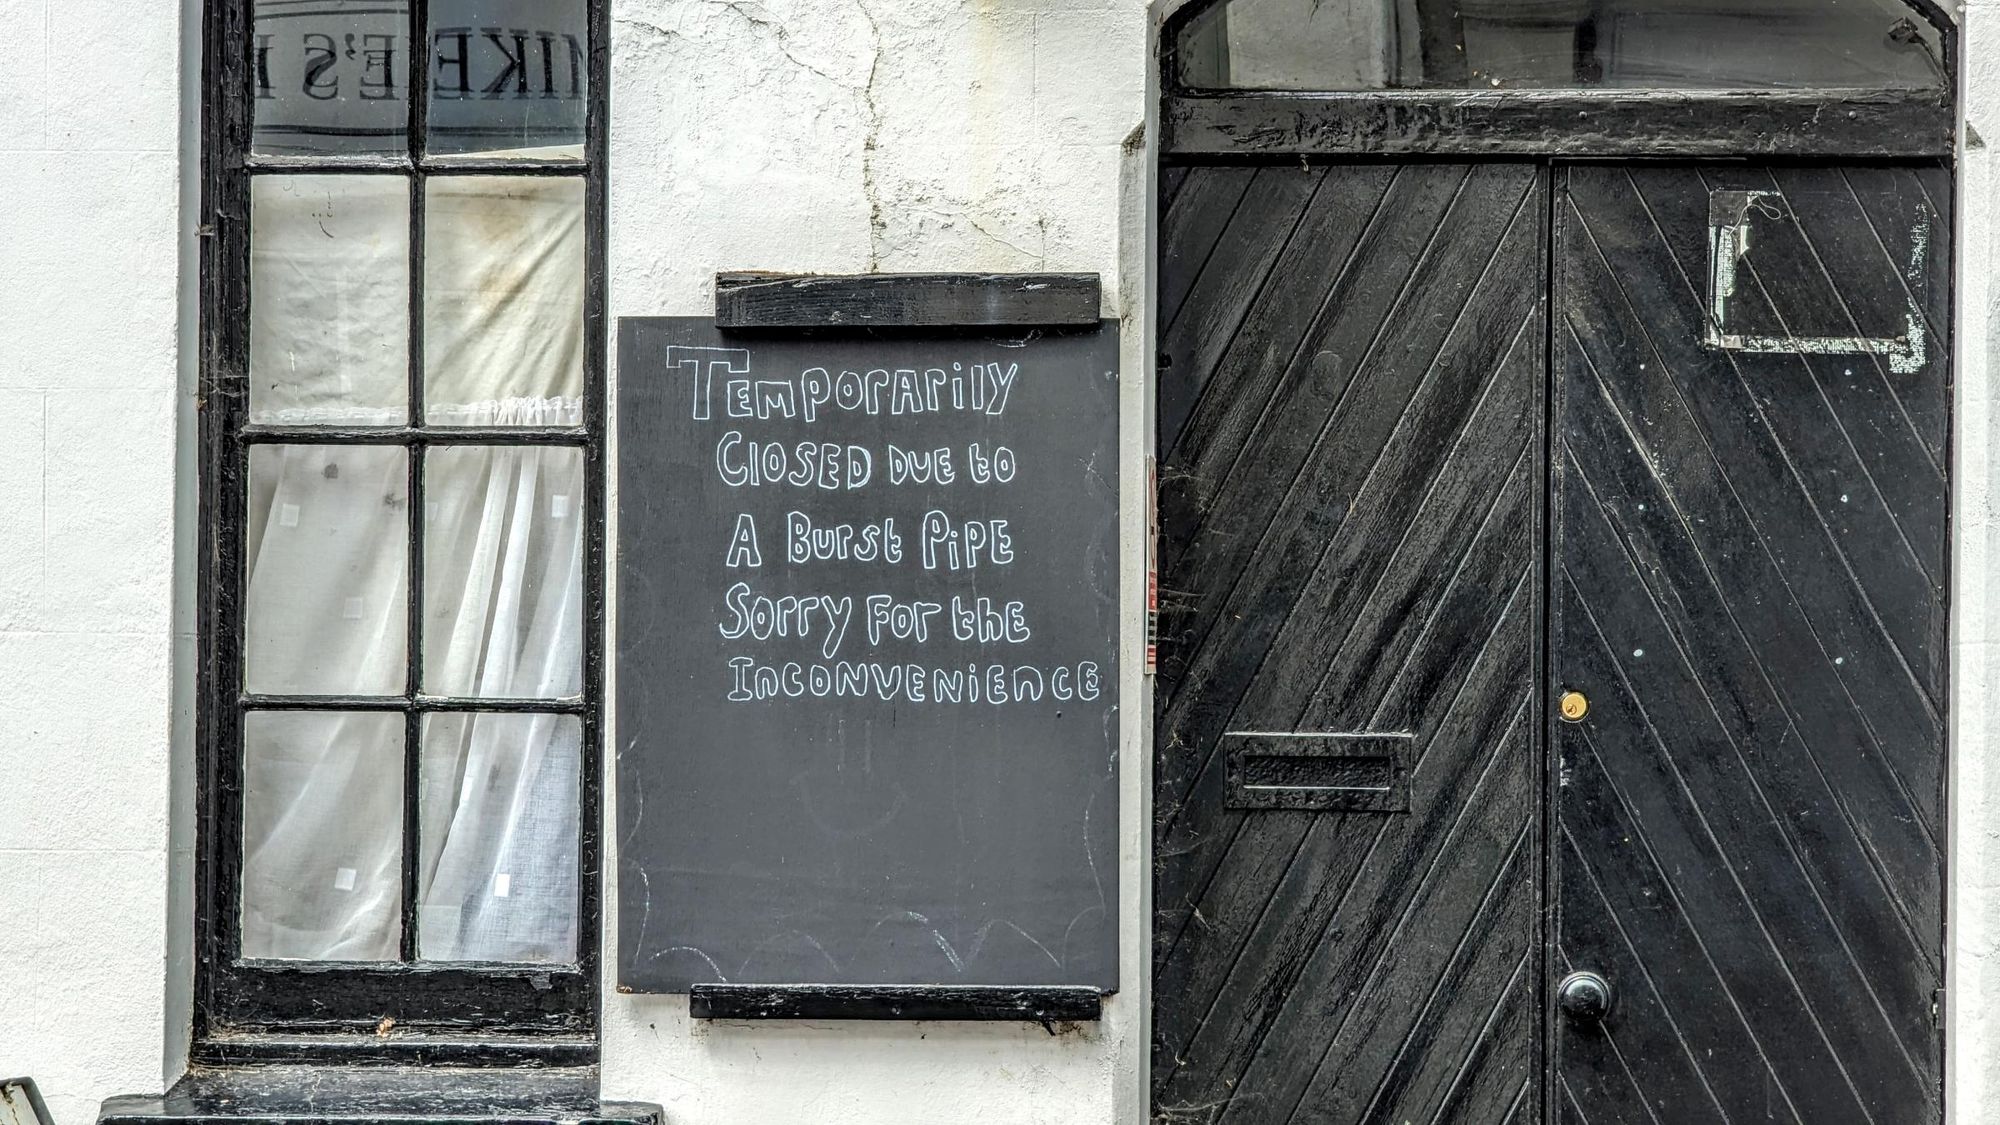 MIKE'E'S
Temporarily
Closed due to
A Burst Pipe
Sorry for the
Inconvenience